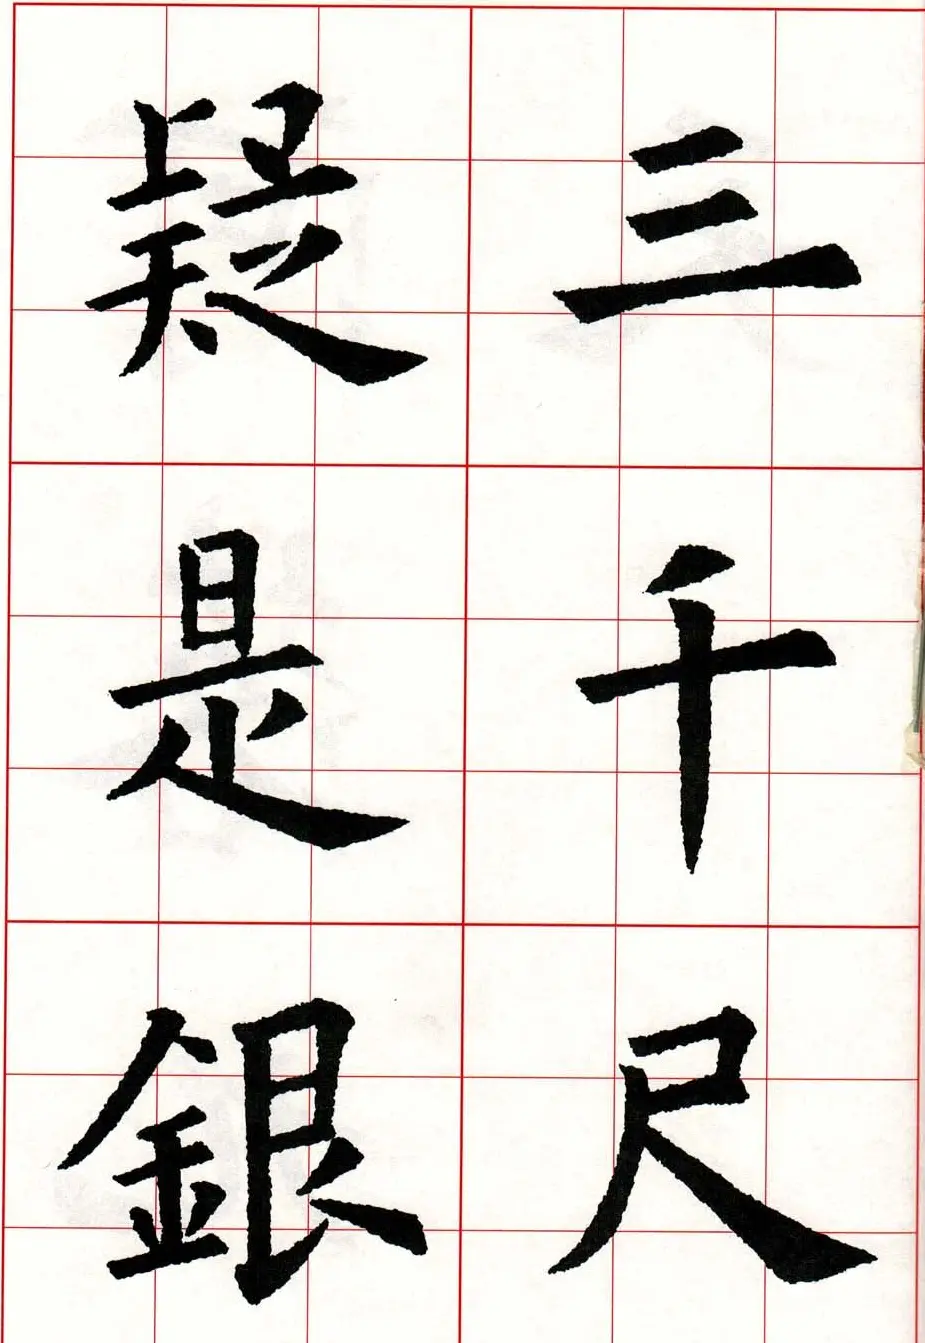 三千尺
疑是銀